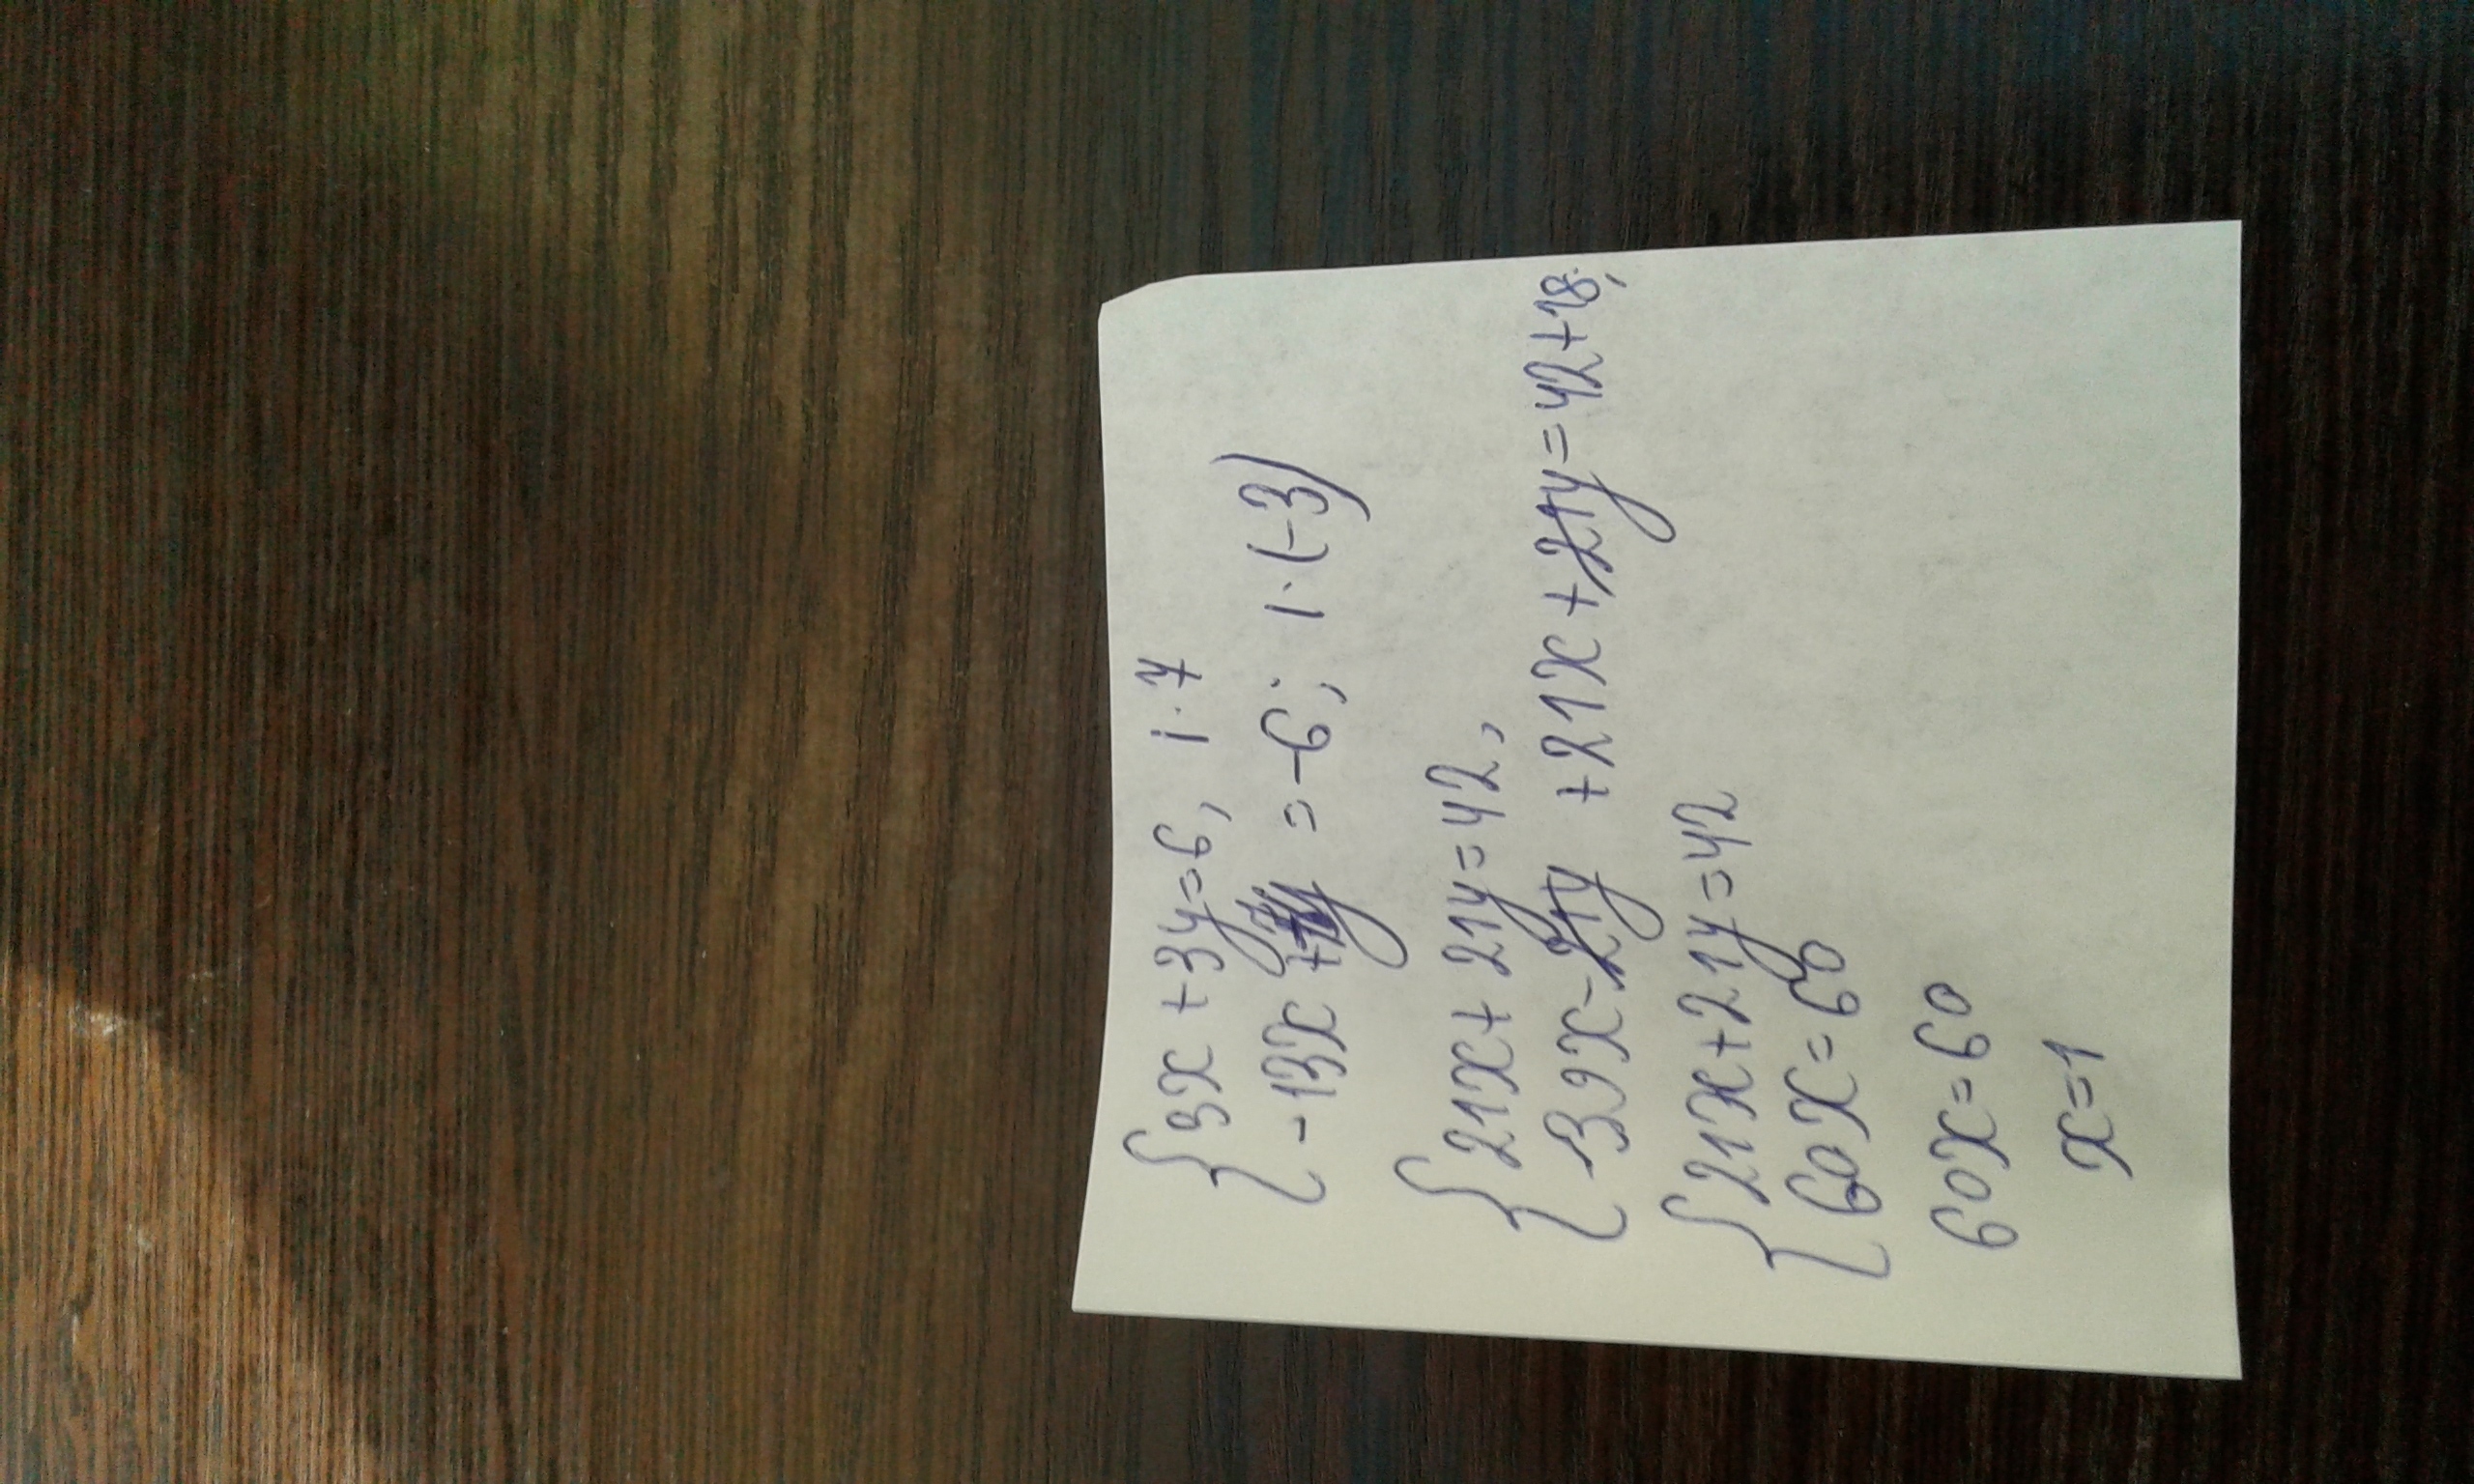 {3x + 3y = 6, | · 7
{-13x + 7y = -6; | · (-3)
{21x + 21y = 42,
{39x - 21y + 21x + 21y = 42 + 18;
{21x + 21y = 42
{60x = 60
60x = 60
x = 1